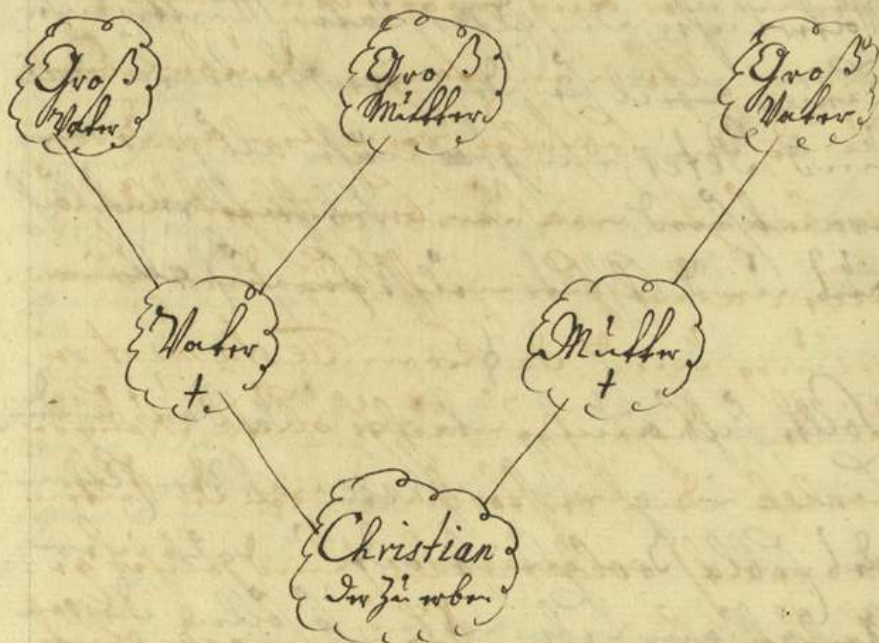 Groß
Vater
Groß
Mutter
Groß
Vater
Vater
†
Mutter
†
Christian
der zu erben